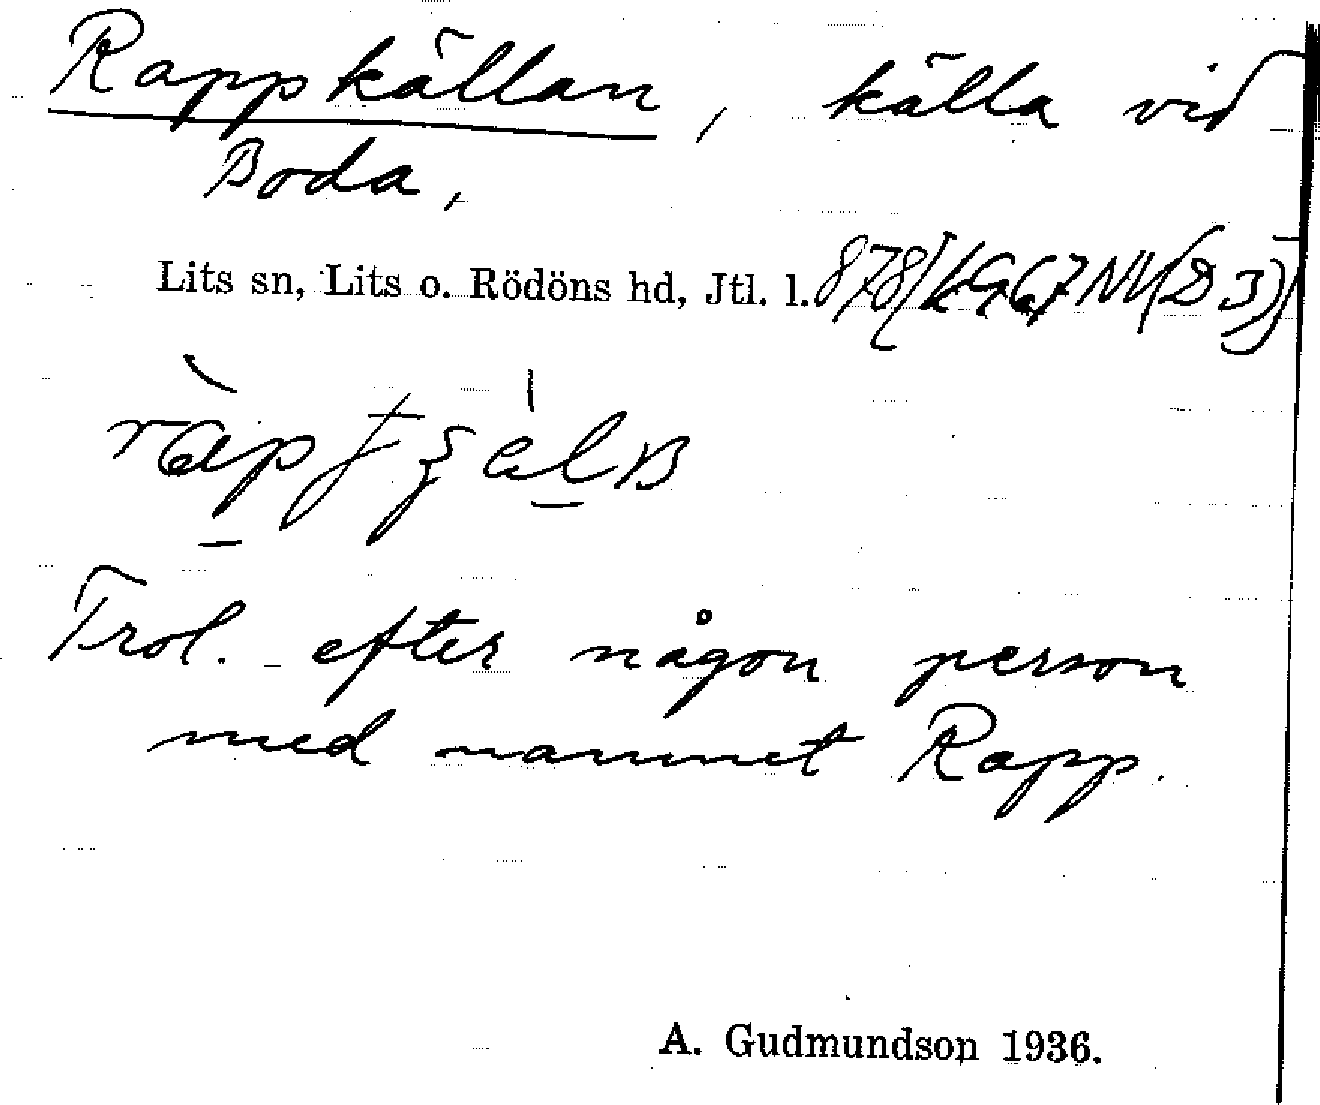 Rappkällan, källa vid
Boda,
Lits sn, Lits o. Rödöns hd, Jtl. l. 878
Trol. efter någon person
med namnet Rapp.
A. Gudmundson 1936.